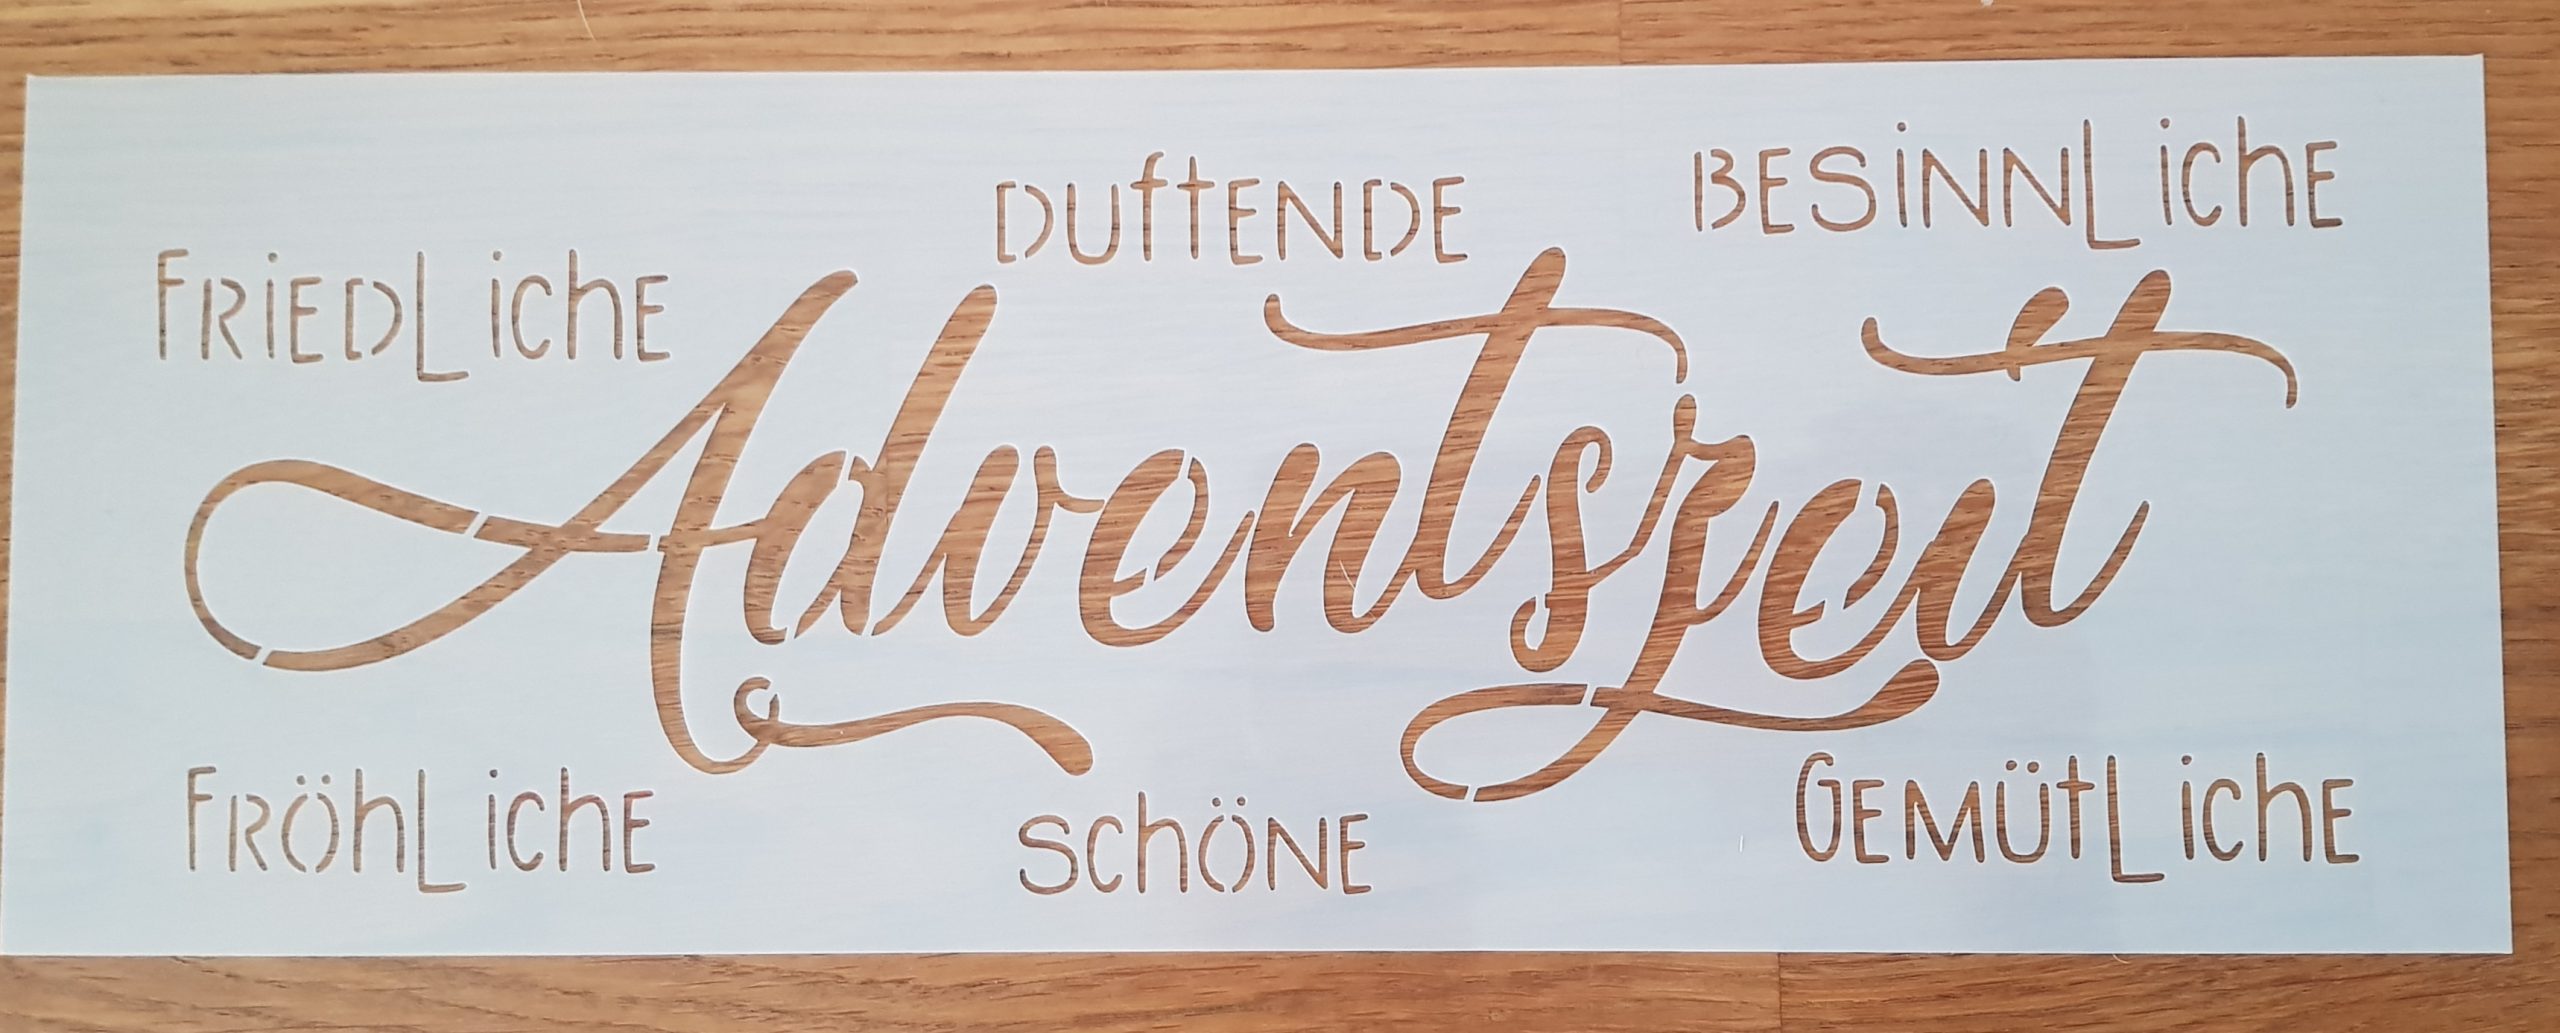 FRIEDLICHE
DUFTENDE
BESINNLICHE
Adventszeit
FRÖHLICHE
SCHÖNE
GEMÜTLICHE